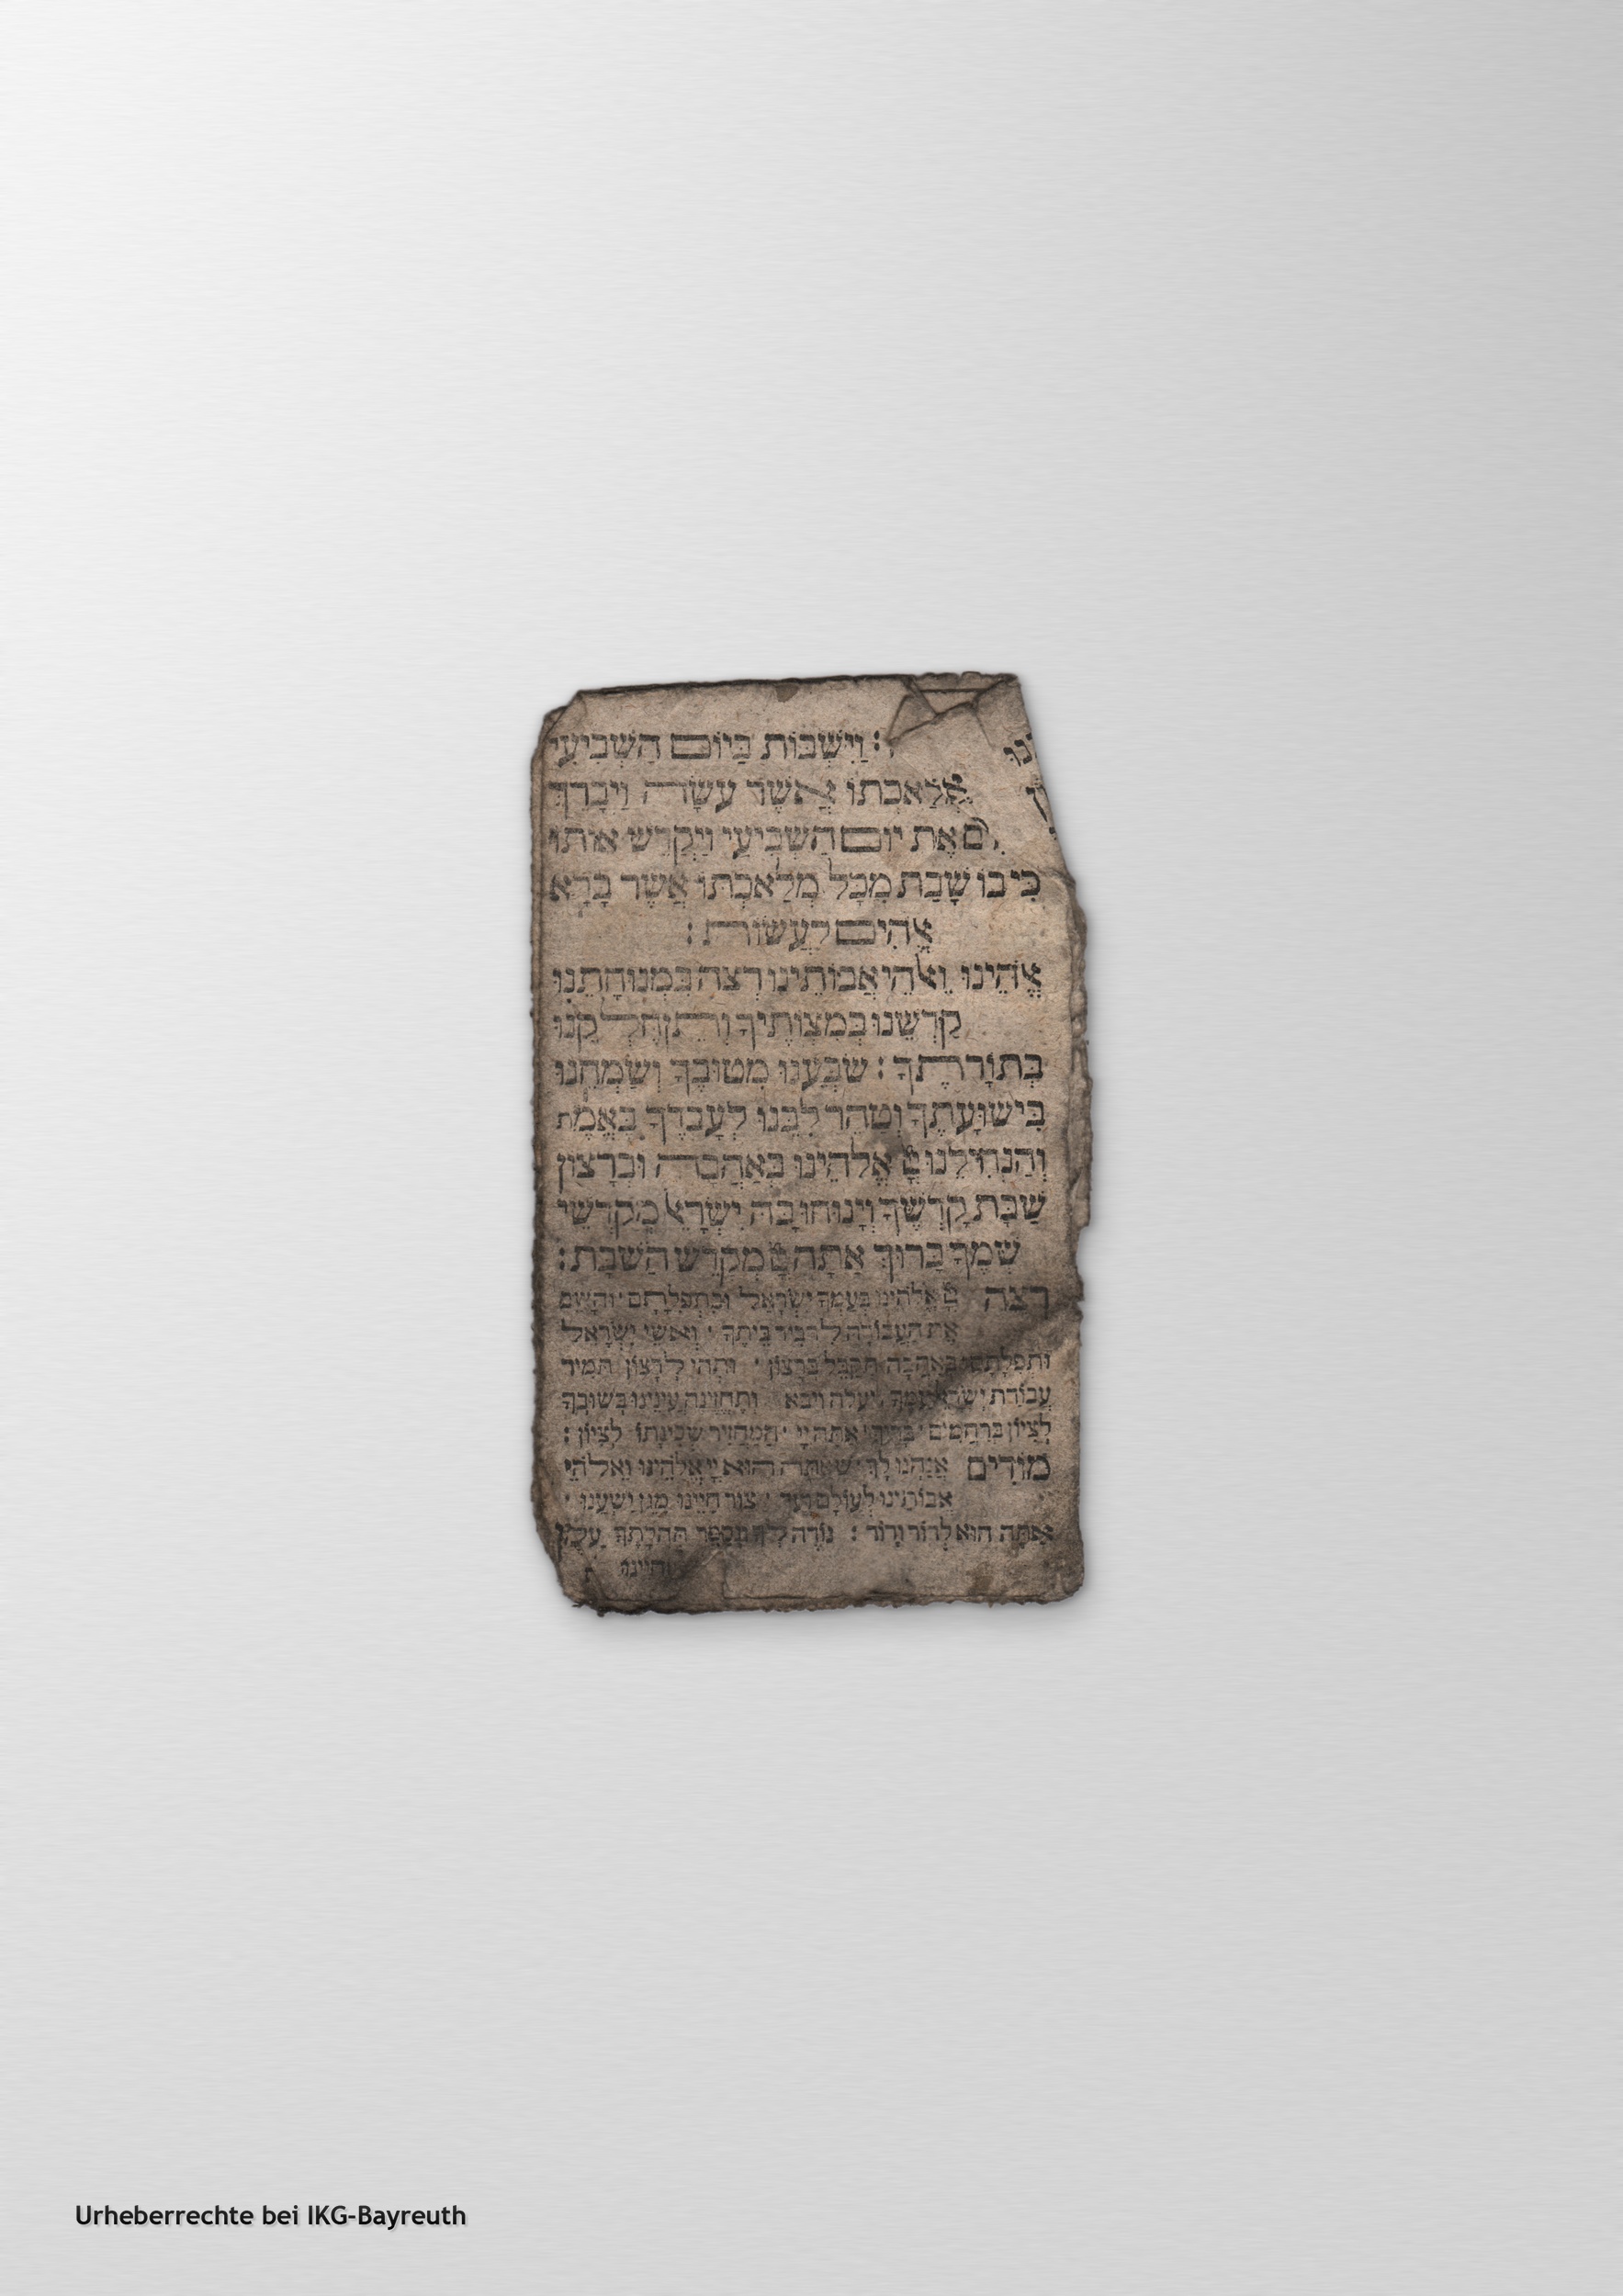 נו
: וַיִּשְׁבּוֹת בַּיּוֹם הַשְּׁבִיעִי
אֲשֶׁר עָשָׂה וַיְבָרֶךְ
אֶת יוֹם הַשְּׁבִיעִי וַיְקַדֵּשׁ אוֹתוֹ
כִּי בוֹ שָׁבַת מִכָּל מְלַאכְתּוֹ אֲשֶׁר בָּרָא
אֱﭏהִים לַעֲשׂוֹת :
אֱﭏהֵינוּ וֵﭏהֵי אֲבוֹתֵינוּ רְצֵה בִּמְנוּחָתֵנוּ
קַדְּשֵׁנוּ בְּמִצְוֹתֶיךָ וְתֵן חֶלְקֵנוּ
בְּתוֹרָתֶךָ : שַׂבְּעֵנוּ מִטּוּבֶךָ וְשַׂמְּחֵנוּ
בִּישׁוּעָתֶךָ וְטַהֵר לִבֵּנוּ לְעָבְדֶּךָ בֶּאֱמֶת
וְהַנְחִילֵנוּ אֱלֹהֵינוּ בְּאַהֲבָה וּבְרָצוֹן
שַׁבַּת קָדְשֶׁךָ וְיָנוּחוּ בָהּ יִשְׂרָﭏ מְקַדְּשֵׁי
שְׁמֶךָ בָּרוּךְ אַתָּה מְקַדֵּשׁ הַשַּׁבָּת :
רְצֵה אֱלֹהֵינוּ בְּעַמְּךָ יִשְׂרָאֵל וּבִתְפִלָּתָם וְהָשֵׁב
אֶת הָעֲבוֹדָה לִדְבִיר בֵּיתֶךָ וְאִשֵּׁי יִשְׂרָאֵל
וּתְפִלָּתָם בְּאַהֲבָה תְקַבֵּל בְּרָצוֹן וּתְהִי לְרָצוֹן תָּמִיד
עֲבוֹדַת יִשְׂרָאֵל עַמֶּךָ יעלה ויבא וְתֶחֱזֶינָה עֵינֵינוּ בְּשׁוּבְךָ
לְצִיּוֹן בְּרַחֲמִים בָּרוּךְ אַתָּה יְיָ הַמַּחֲזִיר שְׁכִינָתוֹ לְצִיּוֹן :
מוֹדִים אֲנַחְנוּ לָךְ שָׁאַתָּה הוּא יְיָ אֱלֹהֵינוּ וֵאלֹהֵי
אֲבוֹתֵינוּ לְעוֹלָם וָעֶד צוּר חַיֵּינוּ מָגֵן יִשְׁעֵנוּ
אַתָּה הוּא לְדוֹר וָדוֹר : נוֹדֶה לְּךָ וּנְסַפֵּר תְּהִלָּתֶךָ עַל
Urheberrechte bei IKG-Bayreuth